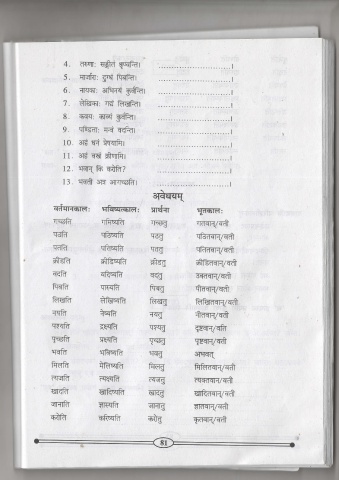 4. तरुणाः सङ्गीतं शृण्वन्ति। ....................।
5. मार्जाराः दुग्धं पिबन्ति। ....................।
6. नायकाः अभिनयं कुर्वन्ति। ....................।
7. लेखिकाः गद्यं लिखन्ति। ....................।
8. कवयः काव्यं कुर्वन्ति। ....................।
9. पण्डिताः मन्त्रं वदन्ति। ....................।
10. अहं धनं प्रेषयामि। ....................।
11. अहं वस्त्रं क्रीणामि। ....................।
12. भवान् किं करोति? ....................।
13. भवती अत्र आगच्छति। ....................।
अवधेयम्
वर्तमानकालः भविष्यत्कालः प्रार्थना भूतकालः
गच्छति गमिष्यति गच्छतु गतवान्/वती
पठति पठिष्यति पठतु पठितवान्/वती
पतति पतिष्यति पततु पतितवान्/वती
क्रीडति क्रीडिष्यति क्रीडतु क्रीडितवान्/वती
वदति वदिष्यति वदतु उक्तवान्/वती
पिबति पास्यति पिबतु पीतवान्/वती
लिखति लेखिष्यति लिखतु लिखितवान्/वती
नयति नेष्यति नयतु नीतवान्/वती
पश्यति द्रक्ष्यति पश्यतु दृष्टवान्/वती
पृच्छति प्रक्ष्यति पृच्छतु पृष्टवान्/वती
भवति भविष्यति भवतु अभवत्
मिलति मेलिष्यति मिलतु मिलितवान्/वती
त्यजति त्यक्ष्यति त्यजतु त्यक्तवान्/वती
खादति खादिष्यति खादतु खादितवान्/वती
जानाति ज्ञास्यति जानातु ज्ञातवान्/वती
करोति करिष्यति करोतु कृतवान्/वती
81